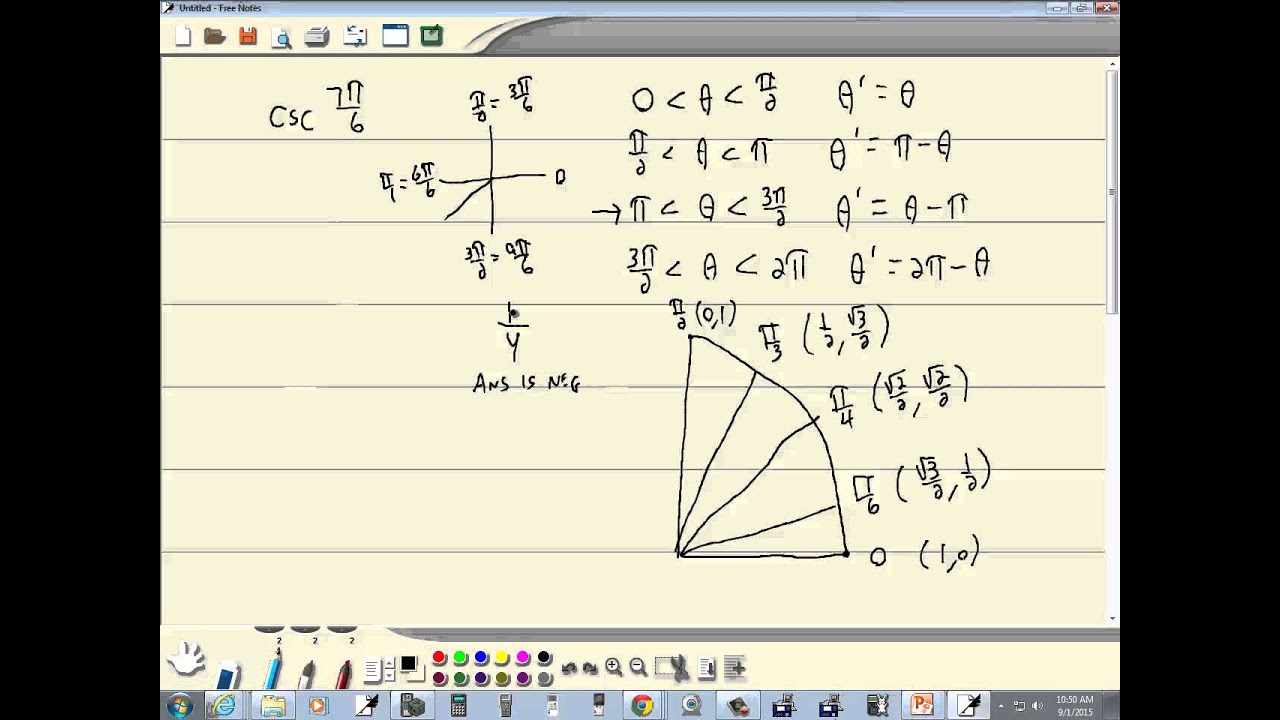 Untitled - Free Notes
CSC 7π/6
π/2 = 3π/6
π/1 = 6π/6
0
3π/2 = 9π/6
1/y
ANS IS NEG
0 < θ < π/2 θ' = θ
π/2 < θ < π θ' = π - θ
→ π < θ < 3π/2 θ' = θ - π
3π/2 < θ < 2π θ' = 2π - θ
π/2 (0,1)
π/3 (1/2, √3/2)
π/4 (√2/2, √2/2)
π/6 (√3/2, 1/2)
0 (1,0)
2 2 2
10:50 AM
9/1/2015